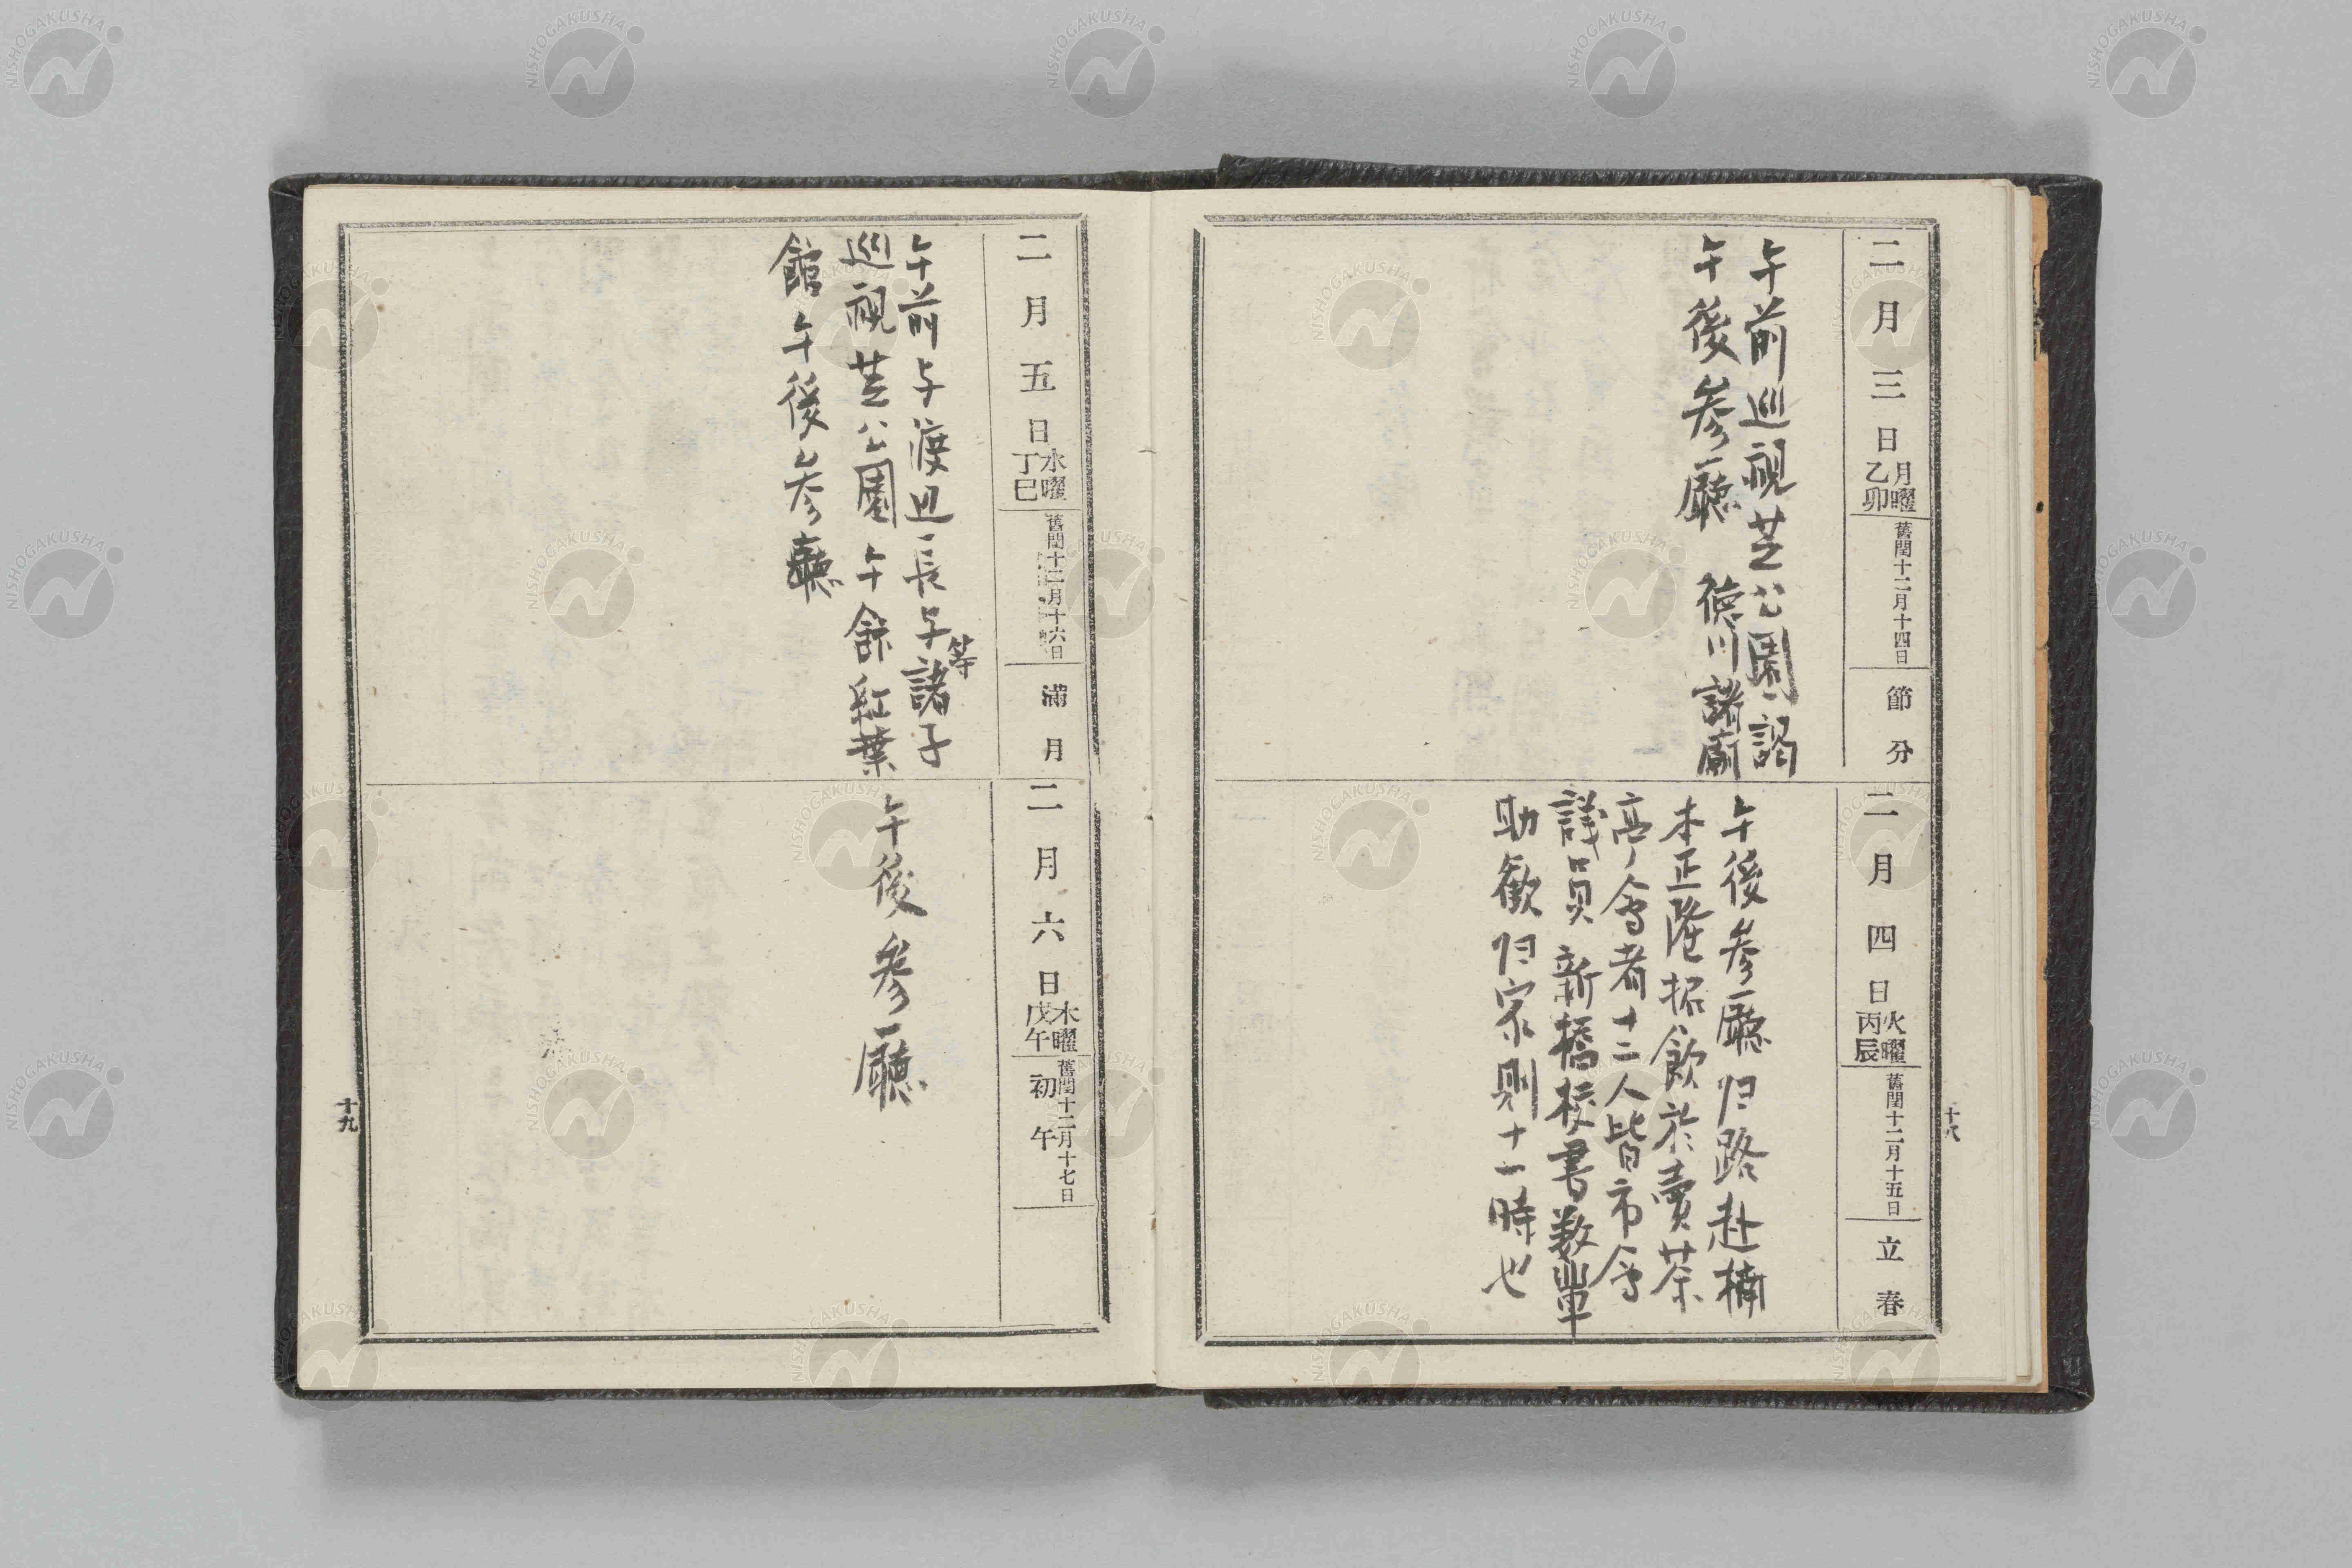 二月三日 月曜 乙卯 舊閏十二月十四日 節分
午前巡視芝公園謁
午後参廳 徳川諸廟
二月四日 火曜 丙辰 舊閏十二月十五日 立春
午後参廳归路赴楠
本正隆招飲於賣茶
亭会者十二人皆市会
議員新橋校書数輩
助歓归家則十一時也
十八
二月五日 水曜 丁巳 舊閏十二月十六日 満月
午前与渡辺長与諸子
等
巡視芝公園午餘紅葉
館午後参廳
二月六日 木曜 戊午 舊閏十二月十七日 初午
午後参廳
十九
NISHOGAKUSHA